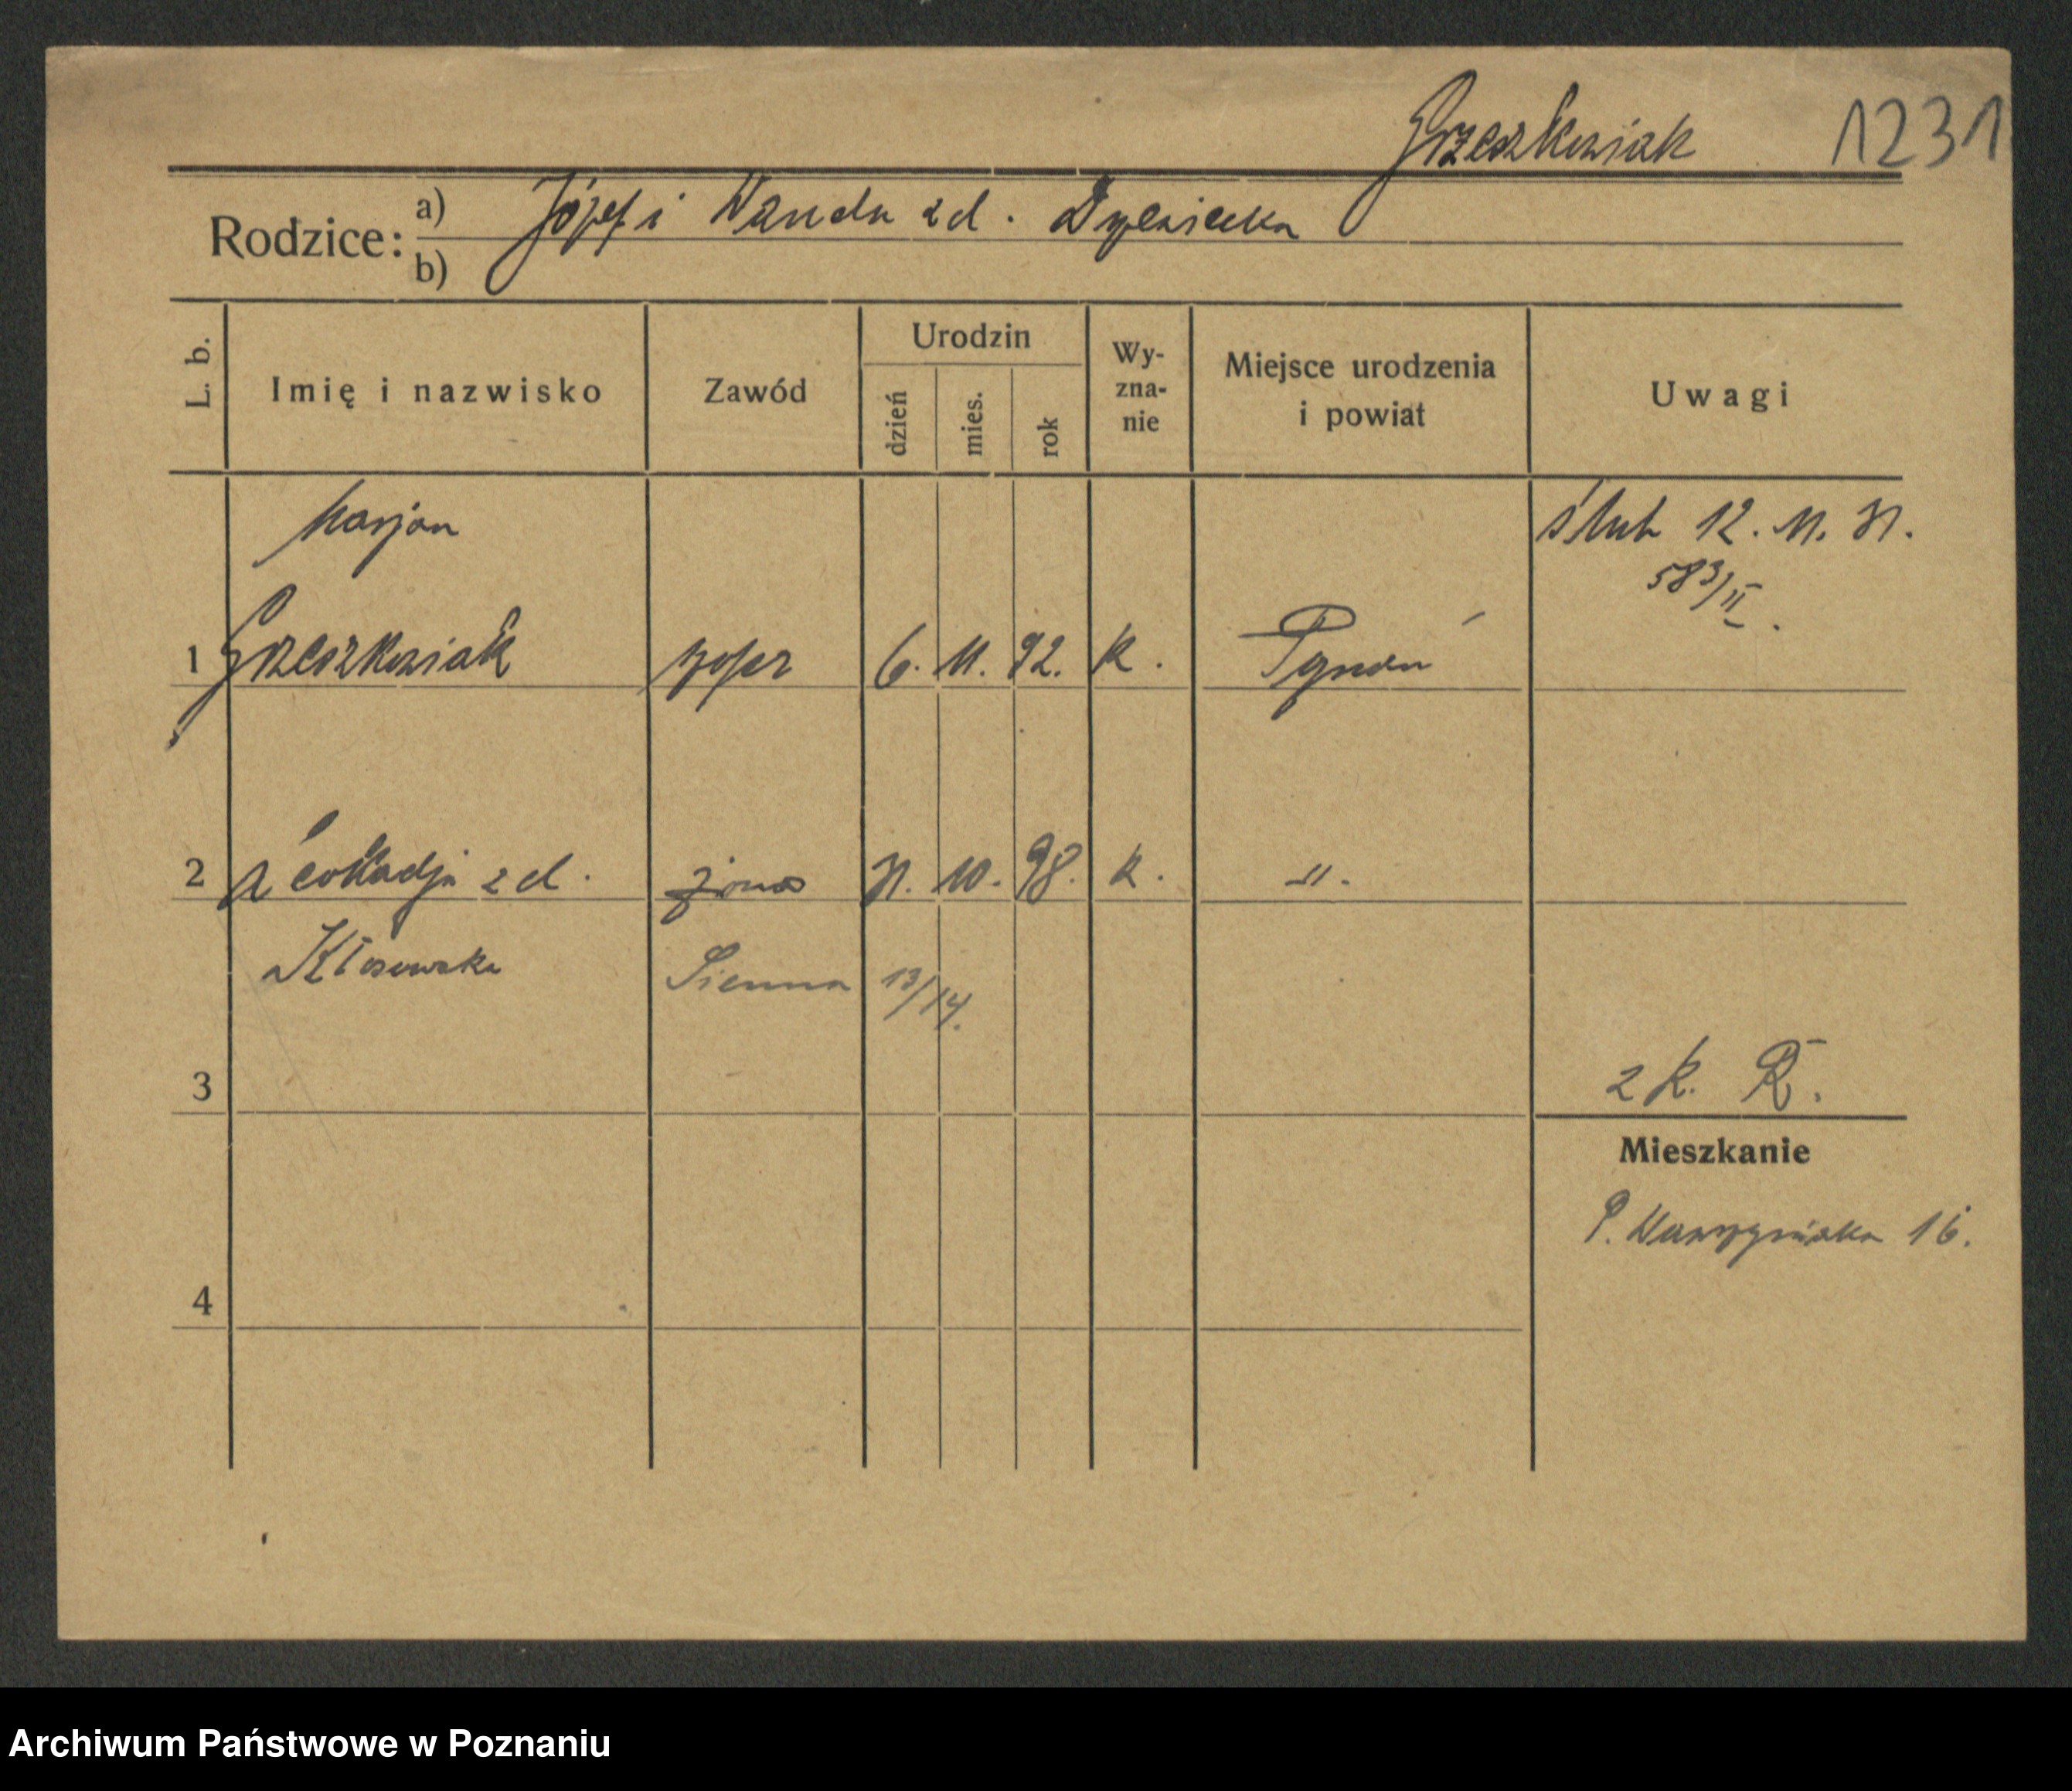 Grzeszkowiak 1231
Rodzice: a) Józef i Wanda zd.
b)
L. b. Imię i nazwisko Zawód Urodzin dzień mies. rok Wy-zna-nie Miejsce urodzenia i powiat Uwagi
Marjan ślub 12. 11. 31.
583/II.
1 Grzeszkowiak szofer 6. 11. 92. k. Poznań
2 Leokadja zd. żona 31. 10. 98. k. -"-
Kłosowska Sienna 13/14.
3 2 k. R.
Mieszkanie
P. Wawrzyniaka 16.
4
Archiwum Państwowe w Poznaniu